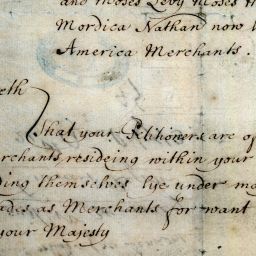 and Moses Levy Moses H
Mordica Nathan now
America Merchants.
eth
That your Petitioners are of
erchants resideing within your
ding themselves lye under ma
ades as Merchants for want
your Majesty